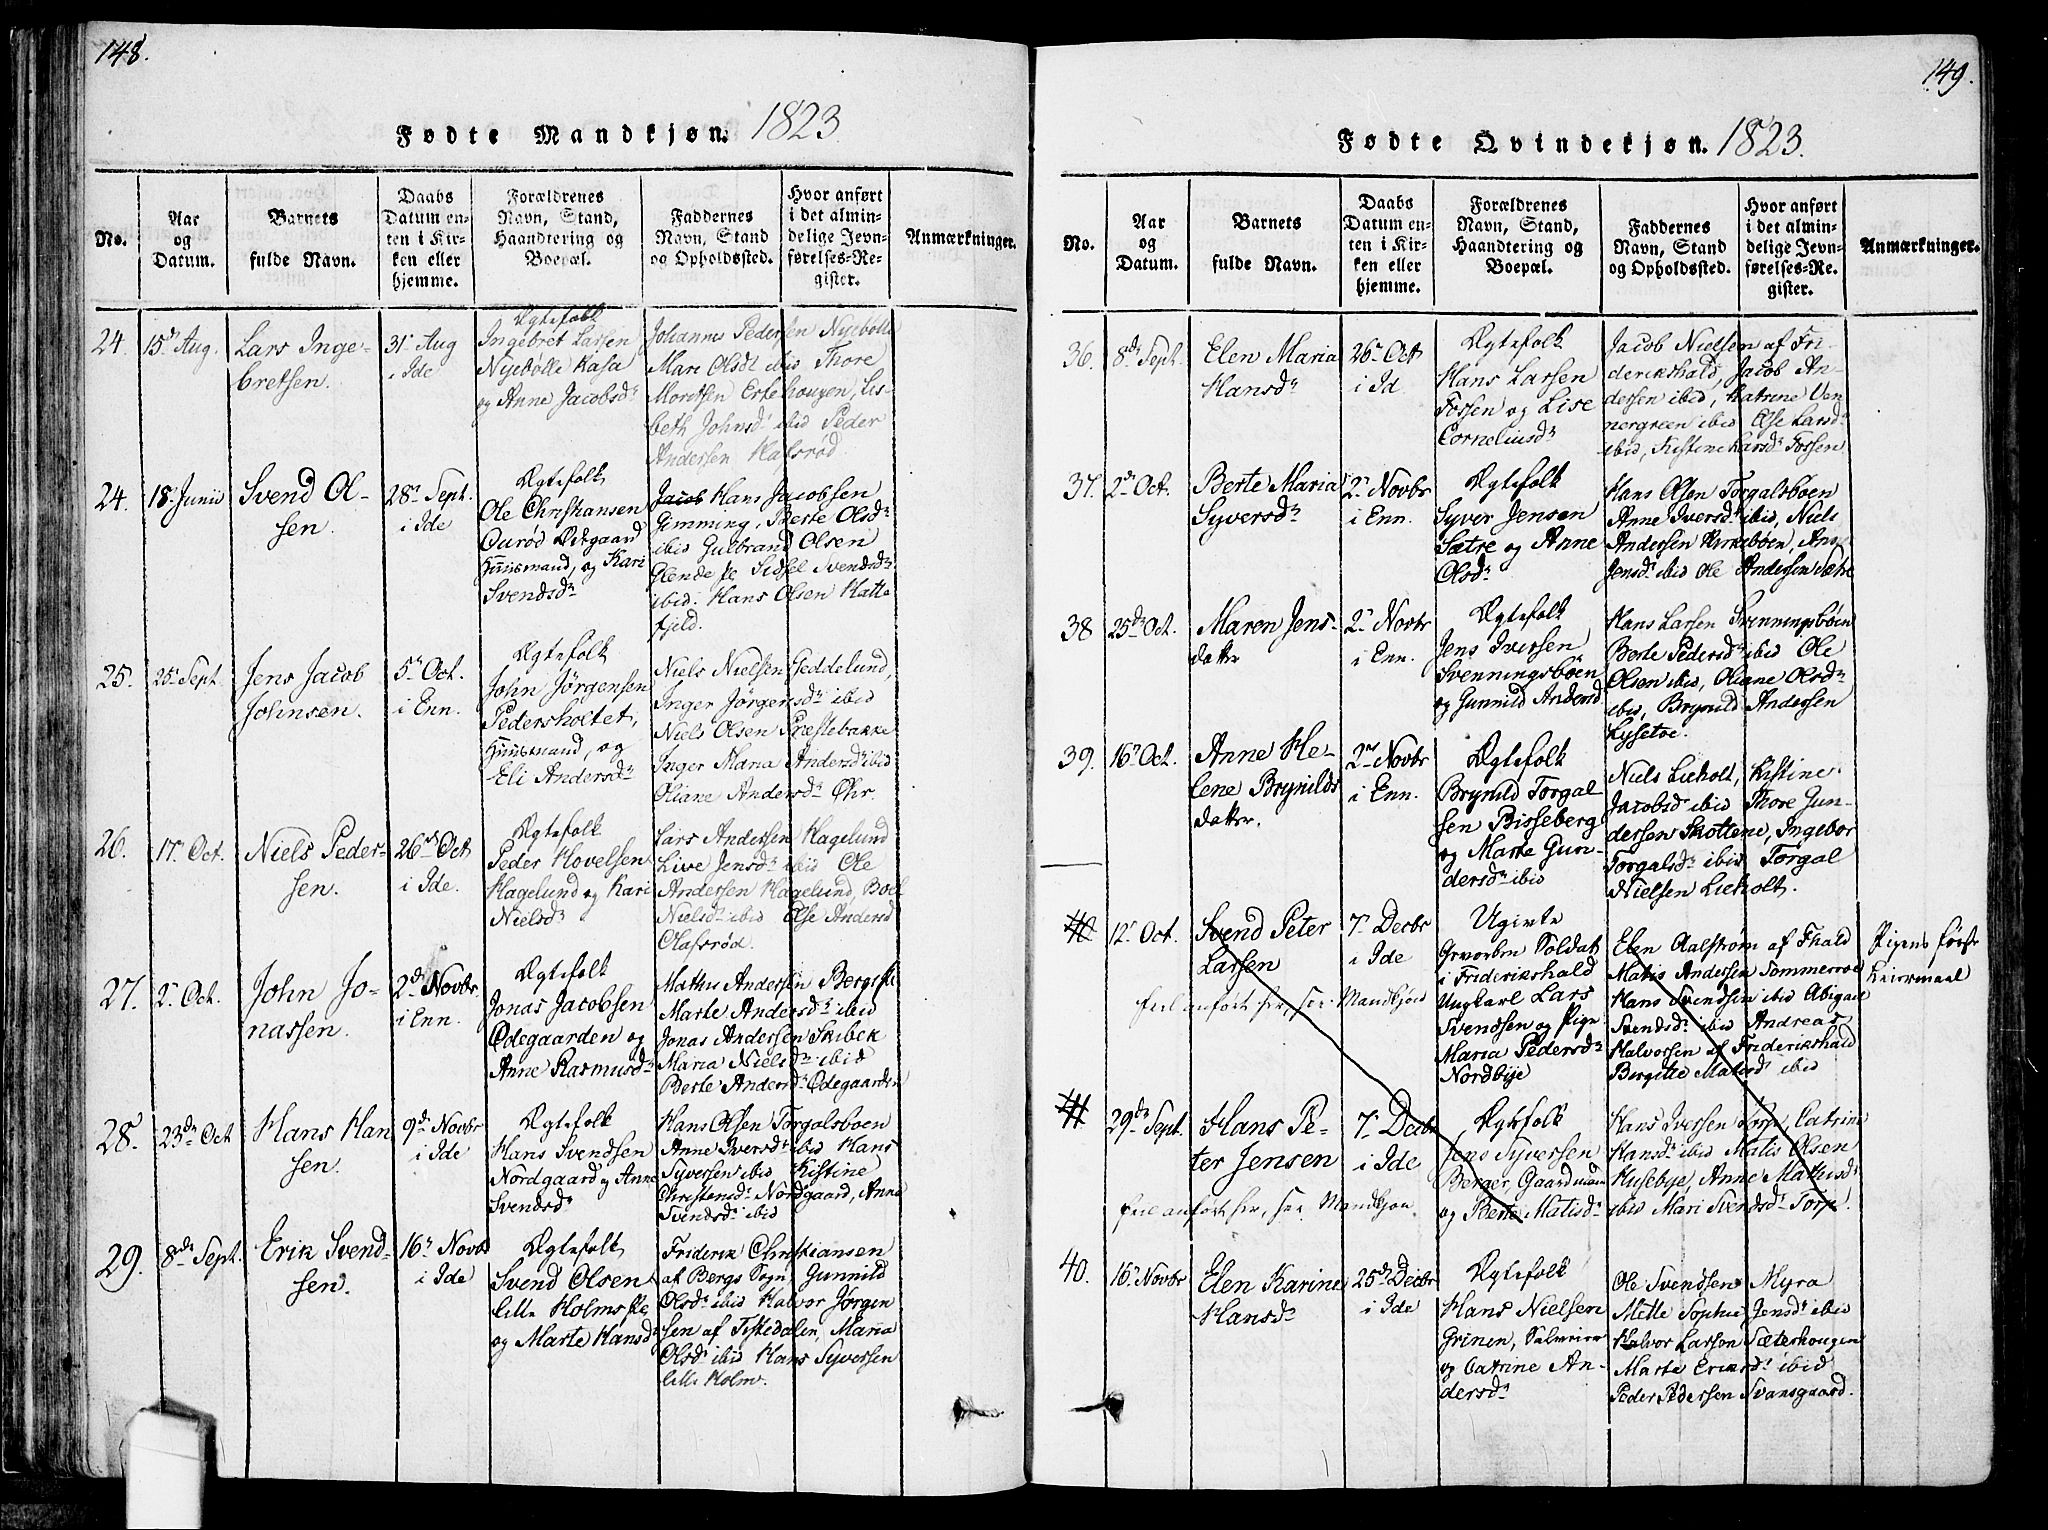 148.
Fødte Mandkjøn. 1823
No.
Aar
og
Datum.
Barnets
fulde Navn.
Daabs
Datum en-
ten i Kir-
ken eller
hjemme.
Forældrenes
Navn, Stand,
Haandtering og
Boepæl.
Faddernes
Navn, Stand
og Opholdssted.
Hvor anført
i det almin-
delige Jevn-
førelses-Re-
gister.
Anmærkninger.
24. 15de Aug.
Lars Inge-
bretsen.
31te Aug
i Ide
Ægtefolk
Ingebret Larsen
Nyebølle Kasa
og Anne Jacobsdr
Johannes Pedersen Nyebølle
Mari Olsdr ibid Thore
Moretsen Ertehougen, Lis-
beth Johnsdr ibid Peder
Andersen Hafsrød.
24. 18. Junii
Svend Ol-
sen.
28r Sept.
i Ide
Ægtefolk
Ole Christiansen
Ourød Ødegaard
Huusmand, og Kari
Svendsdr
Jacob Hans Jacobsen
Gemming, Berte Olsdr
ibid Gulbrand Olsen
Glende Sidsel Svendsdr
ibid. Hans Olsen Katte
fjeld.
25. 25r Sept.
Jens Jacob
Johnsen.
5r Oct.
i Enn.
Ægtefolk
John Jörgensen
Pedersholtet,
Huusmand, og
Eli Andersdr
Niels Nielsen Geddelund,
Inger Jörgensdr ibid
Niels Olsen Præstebakke
Inger Maria Andersdr ibid
Oliane Andersdr Ohr.
26. 17r Oct.
Niels Peder-
sen.
26de Oct
i Ide.
Ægtefolk
Peder Hovelsen
Hagelund og Kari
Nielsdr
Lars Andersen Hagelund
Live Jensdr ibid Ole
Andersen Hagelund, Boel
Nielsdr ibid Else Andersd
Olafsrød.
27. 2r Oct.
John Jo-
nassen.
2de Novbr.
i Enn.
Ægtefolk
Jonas Jacobsen
Ødegaarden og
Anne Rasmusdr
Mathis Andersen Bergs
Marte Andersdr ibid
Jonas Andersen Skibek
Maria Nielsdr ibid
Berte Andersdr Ødegaarden
28. 23de Oct
Hans Han
sen.
9de Novbr
i Ide
Ægtefolk
Hans Svendsen
Nordgaard og Anne
Svendsdr
Hans Olsen Torgalsboen
Anne Iversdr ibid Hans
Syversen ibid Kistine
Christensdr Nordgaard, Anne
Svendsdr ibid
29. 8de Sept.
Erik Svend-
sen.
16r Novbr
i Ide
Ægtefolk
Svend Olsen
lille Holms
og Marte Hansd
Friderik Christiansen
af Bergs Sogn, Gunnild
Olsdr ibid Halvor Jörgen
sen af Tistedalen, Maria
Olsdr ibid Hans Syversen
lille Holm.
149.
Fødte Qvindekjøn. 1823.
No.
Aar
og
Datum.
Barnets
fulde Navn.
Daabs
Datum en-
ten i Kir-
ken eller
hjemme.
Forældrenes
Navn, Stand,
Haandtering og
Boepæl.
Faddernes
Navn, Stand
og Opholdssted.
Hvor anført
i det almin-
delige Jevn-
førelses-Re-
gister.
Anmærkninger.
36. 8de Sept.
Elen Maria
Hansdr
26r Oct
i Id.
Ægtefolk
Hans Larsen
Fossen og Lise
Corneliusdr
Jacob Nielsen af Fri-
derikshald, Jacob An-
dersen ibid, Katrine Ven
nergreen ibid Else Larsdr
ibid, Kistine Larsdr Fossen
37. 2de Oct.
Berte Maria
Syversdr
2r Novbr
i Enn.
Ægtefolk
Syver Jensen
Sætre og Anne
Olsdr
Hans Olsen Torgalsboen
Anne Iversdr ibid, Niels
Andersen Kirkeböen, Anne
Jensdr ibid Ole Andersen Sætre
38 25de Oct.
Maren Jens-
datter
2r Novbr
i Enn.
Ægtefolk
Jens Iversen
Svenningsböen
og Gunnild Andersd
Hans Larsen Svenningsböen
Berte Pedersdr ibid Ole
Olsen ibid, Oliane Olsdr
ibid, Brynild Andersen
Lysetoe.
39. 16r Oct.
Anne He-
lene Brynilds
datter.
2r Novbr
i Enn.
Ægtefolk
Brynild Torgal
sen Bisseberg
og Marte Gun-
dersdr ibid
Niels Lieholt, Kistine
Jacobsd ibid Thore Gun-
dersen Skottene, Ingebor
Torgalsdr ibid Torgal
Nielsen Lieholt.
40 12r Oct.
Svend Peter
Larsen
7r Decbr
i Ide
feil anfört her, see Mandkjön
Ugivte
Gevorben Soldat
i Friderikshald
Ungkarl Lars
Svendsen og Pige
Maria Pedersdr
Nordbye
Elen Aalström af Fhald
Matis Andersen Sommeroe
Hans Svendsen ibid Abigael
Svendsdr ibid Andreas
Halvorsen af Friderikshald
Birgitte Matisdr ibid
Pigens förste
Leiermaal
41 29de Sept.
Hans Pe-
ter Jensen
7r Decbr
i Ide
feil anfört her, see Mandkjön.
Ægtefolk
Jens Syversen
Berger, Gaardmand
og Berte Matisdr
Hans Iversen Torp, Catrine
Hansdr ibid Matis Olsen
Husebye, Anne Mathisdr
ibid Mari Svendsdr Torp.
40. 16r Novbr
Elen Karine
Hansdr
25de Decbr
i Ide
Ægtefolk
Hans Nielsen
Grinen, Selveier
og Catrine An-
dersdr
Ole Svendsen Myra
Mette Sophie Jensdr ibid
Halvor Larsen Sæterhougen
Marte Eriksdr ibid
Peder Pedersen Svansgaard.